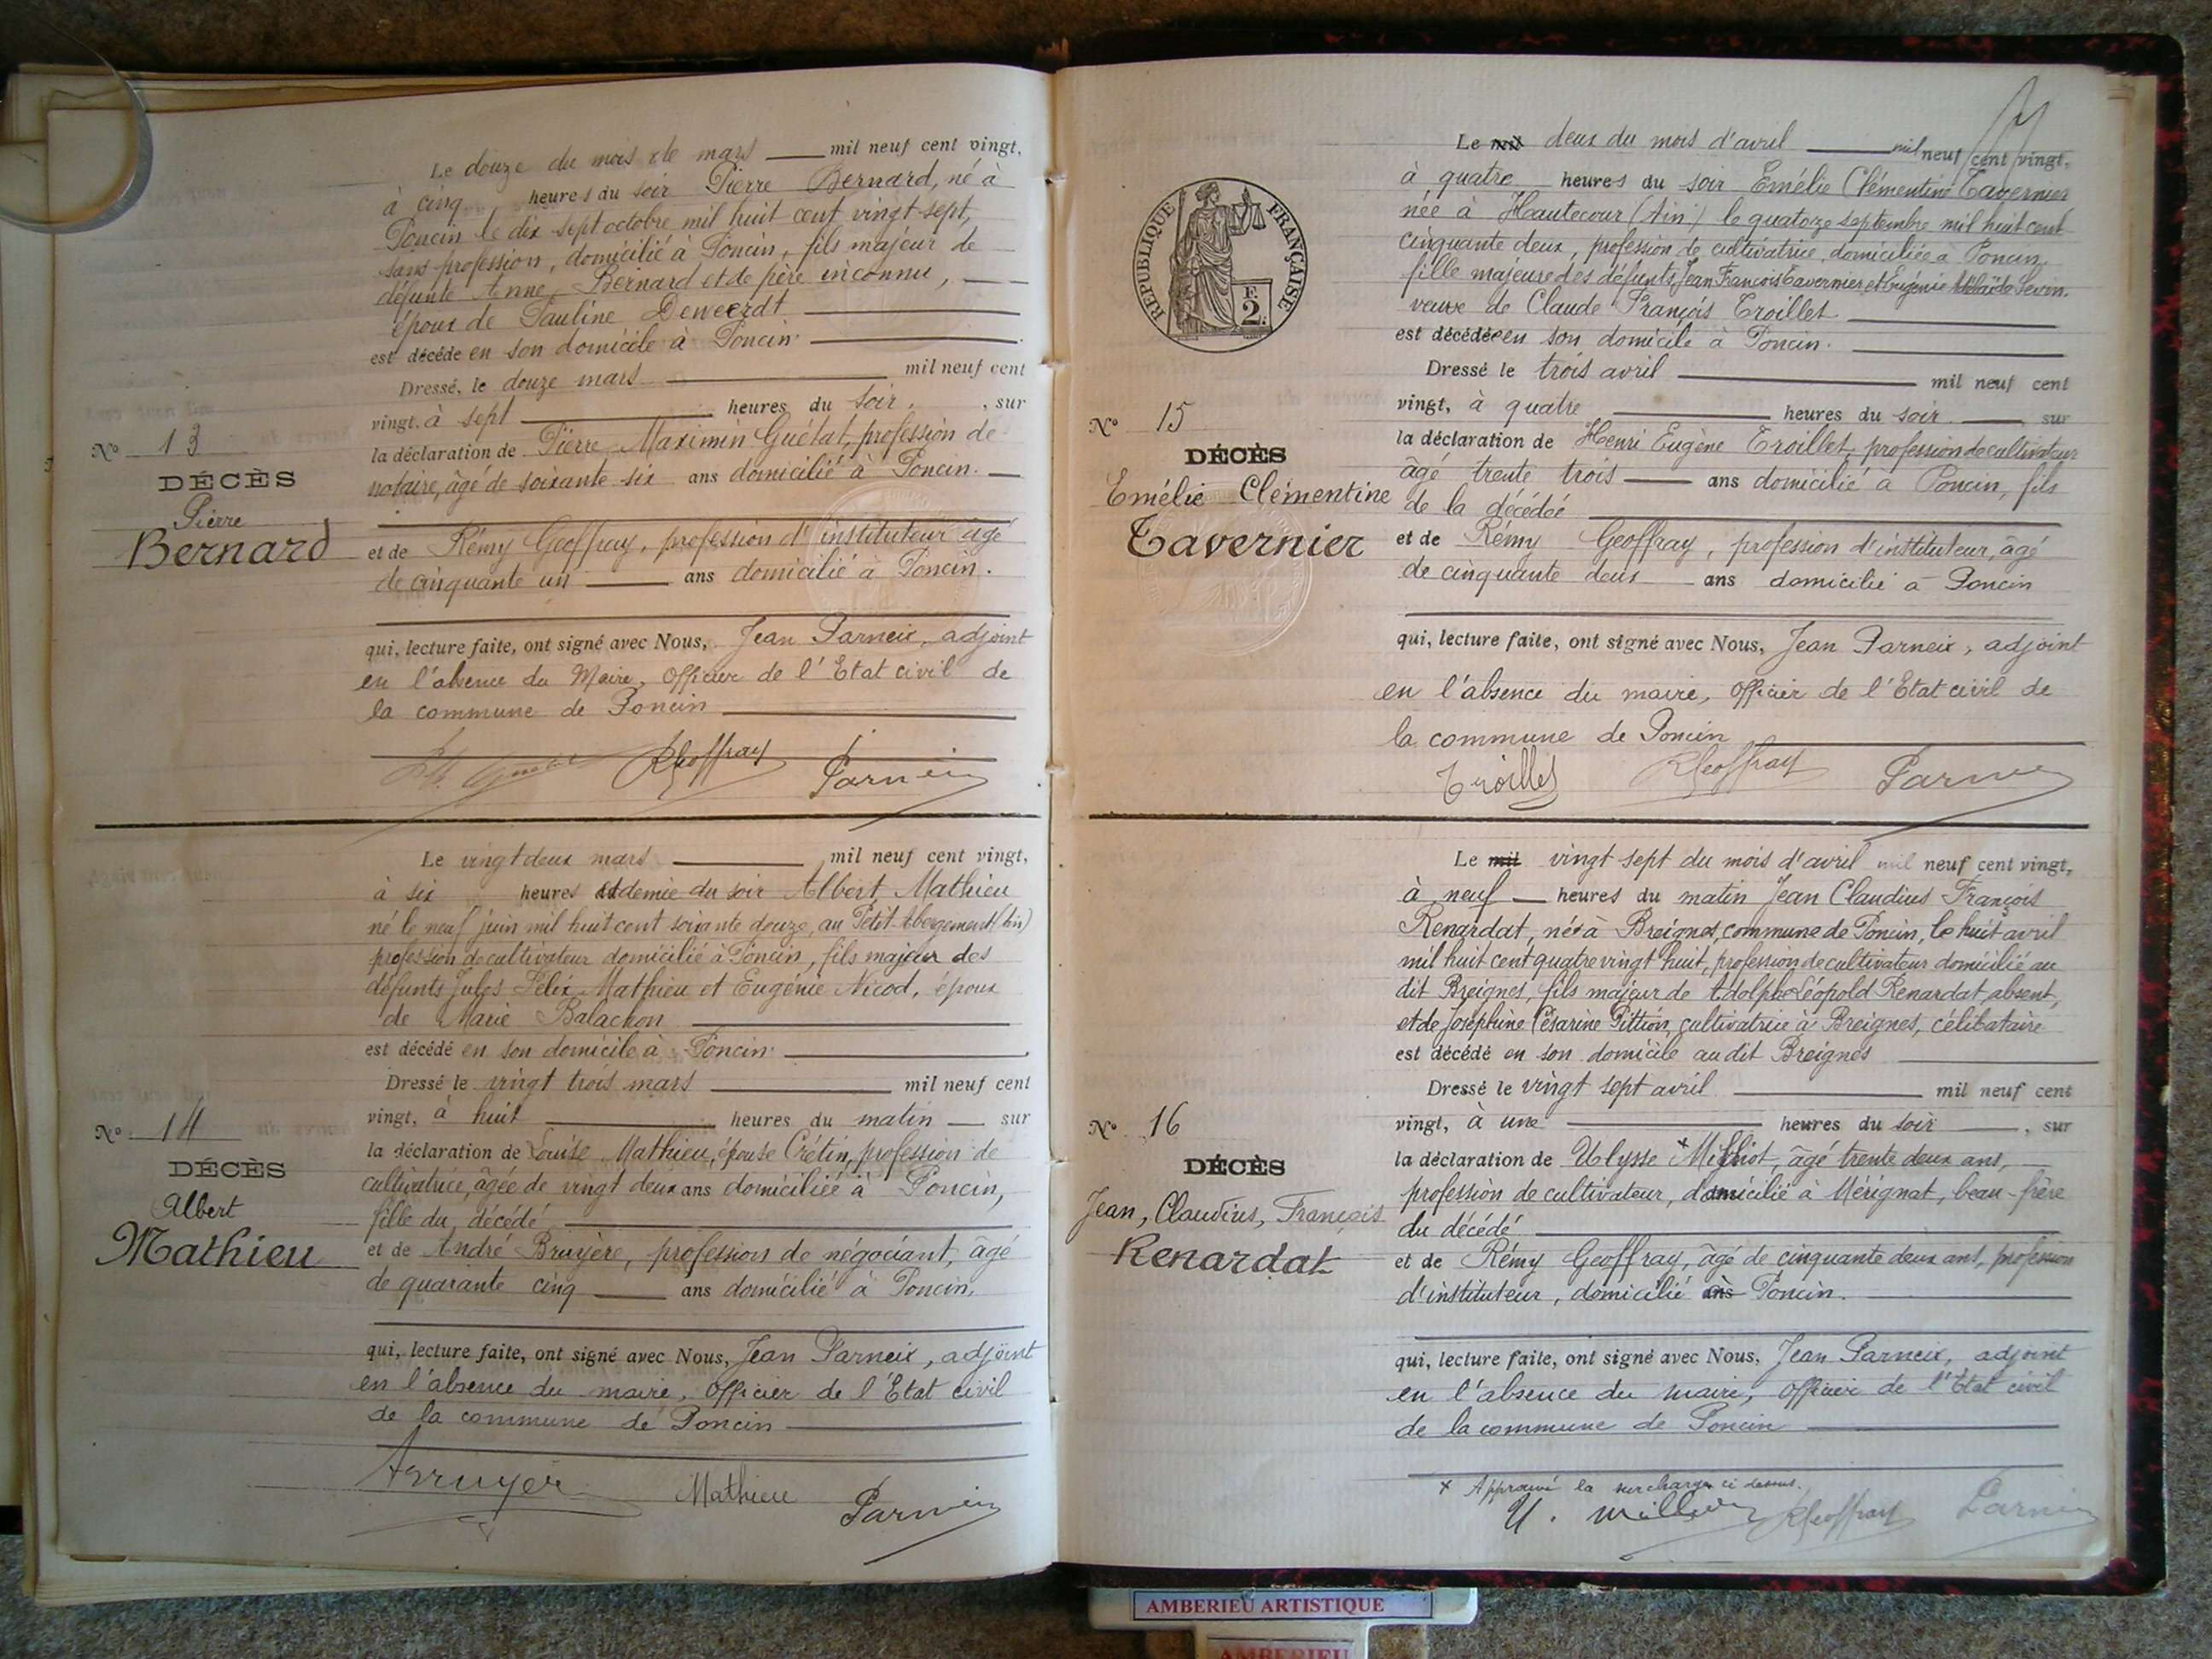 Le douze du mois de mars mil neuf cent vingt,
à cinq heures du soir Pierre Bernard, né à
Poncin le dix sept octobre mil huit cent vingt sept,
sans profession, domicilié à Poncin, fils majeur de
défunte Anne Bernard et de père inconnu,
époux de Pauline Deweerdt
est décédé en son domicile à Poncin
Dressé, le douze mars mil neuf cent
vingt, à sept heures du soir, sur
la déclaration de Pierre Maximin Guétat, profession de
notaire, âgé de soixante six ans domicilié à Poncin.
et de Rémy Geoffray, profession d'instituteur âgé
de cinquante un ans domicilié à Poncin.
qui, lecture faite, ont signé avec Nous, Jean Parneix, adjoint
en l'absence du Maire, Officier de l'Etat civil de
la commune de Poncin
RGeoffray Parneix
No 13
DÉCÈS
Pierre
Bernard
Le vingt deux mars mil neuf cent vingt,
à six heures et demie du soir Albert Mathieu
né le neuf juin mil huit cent soixante douze, au Petit Abergement (Ain)
profession de cultivateur domicilié à Poncin, fils majeur des
défunts Jules Félix Mathieu et Eugénie Nicod, époux
de Marie Balachon
est décédé en son domicile à Poncin
Dressé le vingt trois mars mil neuf cent
vingt, à huit heures du matin sur
la déclaration de Louise Mathieu, épouse Crétin, profession de
cultivatrice, âgée de vingt deux ans domiciliée à Poncin,
fille du décédé
et de André Bruyère, profession de négociant, âgé
de quarante cinq ans domicilié à Poncin,
qui, lecture faite, ont signé avec Nous, Jean Parneix, adjoint
en l'absence du maire, Officier de l'Etat civil
de la commune de Poncin
Abruyère Mathieu Parneix
No 14
DÉCÈS
Albert
Mathieu
RÉPUBLIQUE FRANÇAISE
F.
2.
Le mil deux du mois d'avril mil neuf cent vingt,
à quatre heures du soir Emélie Clémentine Tavernier
née à Hautecour (Ain) le quatorze septembre mil huit cent
cinquante deux, profession de cultivatrice, domiciliée à Poncin,
fille majeure des défunts Jean François Tavernier et Eugénie Sevin.
veuve de Claude François Troillet
est décédée en son domicile à Poncin.
Dressé le trois avril mil neuf cent
vingt, à quatre heures du soir sur
la déclaration de Henri Eugène Troillet, profession de cultivateur
âgé trente trois ans domicilié à Poncin, fils
de la décédée
et de Rémy Geoffray, profession d'instituteur, âgé
de cinquante deux ans domicilié à Poncin
qui, lecture faite, ont signé avec Nous, Jean Parneix, adjoint
en l'absence du maire, Officier de l'Etat civil de
la commune de Poncin
Troillet RGeoffray Parneix
No 15
DÉCÈS
Emélie Clémentine
Tavernier
Le mil vingt sept du mois d'avril mil neuf cent vingt,
à neuf heures du matin Jean Claudius François
Renardat, né à Breignes, commune de Poncin, le huit avril
mil huit cent quatre vingt huit, profession de cultivateur domicilié au
dit Breignes, fils majeur de Adolphe Léopold Renardat, absent,
et de Joséphine Césarine Pittion, cultivatrice à Breignes, célibataire
est décédé en son domicile au dit Breignes
Dressé le vingt sept avril mil neuf cent
vingt, à une heures du soir, sur
la déclaration de Ulysse x Milliot, âgé trente deux ans,
profession de cultivateur, domicilié à Mérignat, beau-frère
du décédé
et de Rémy Geoffray, âgé de cinquante deux ans, profession
d'instituteur, domicilié ans Poncin.
qui, lecture faite, ont signé avec Nous, Jean Parneix, adjoint
en l'absence du maire, Officier de l'Etat civil
de la commune de Poncin
x Approuvé la surcharge ci dessus.
U. Milliot RGeoffray Parneix
No 16
DÉCÈS
Jean, Claudius, François
Renardat
AMBERIEU ARTISTIQUE
AMBERIEU